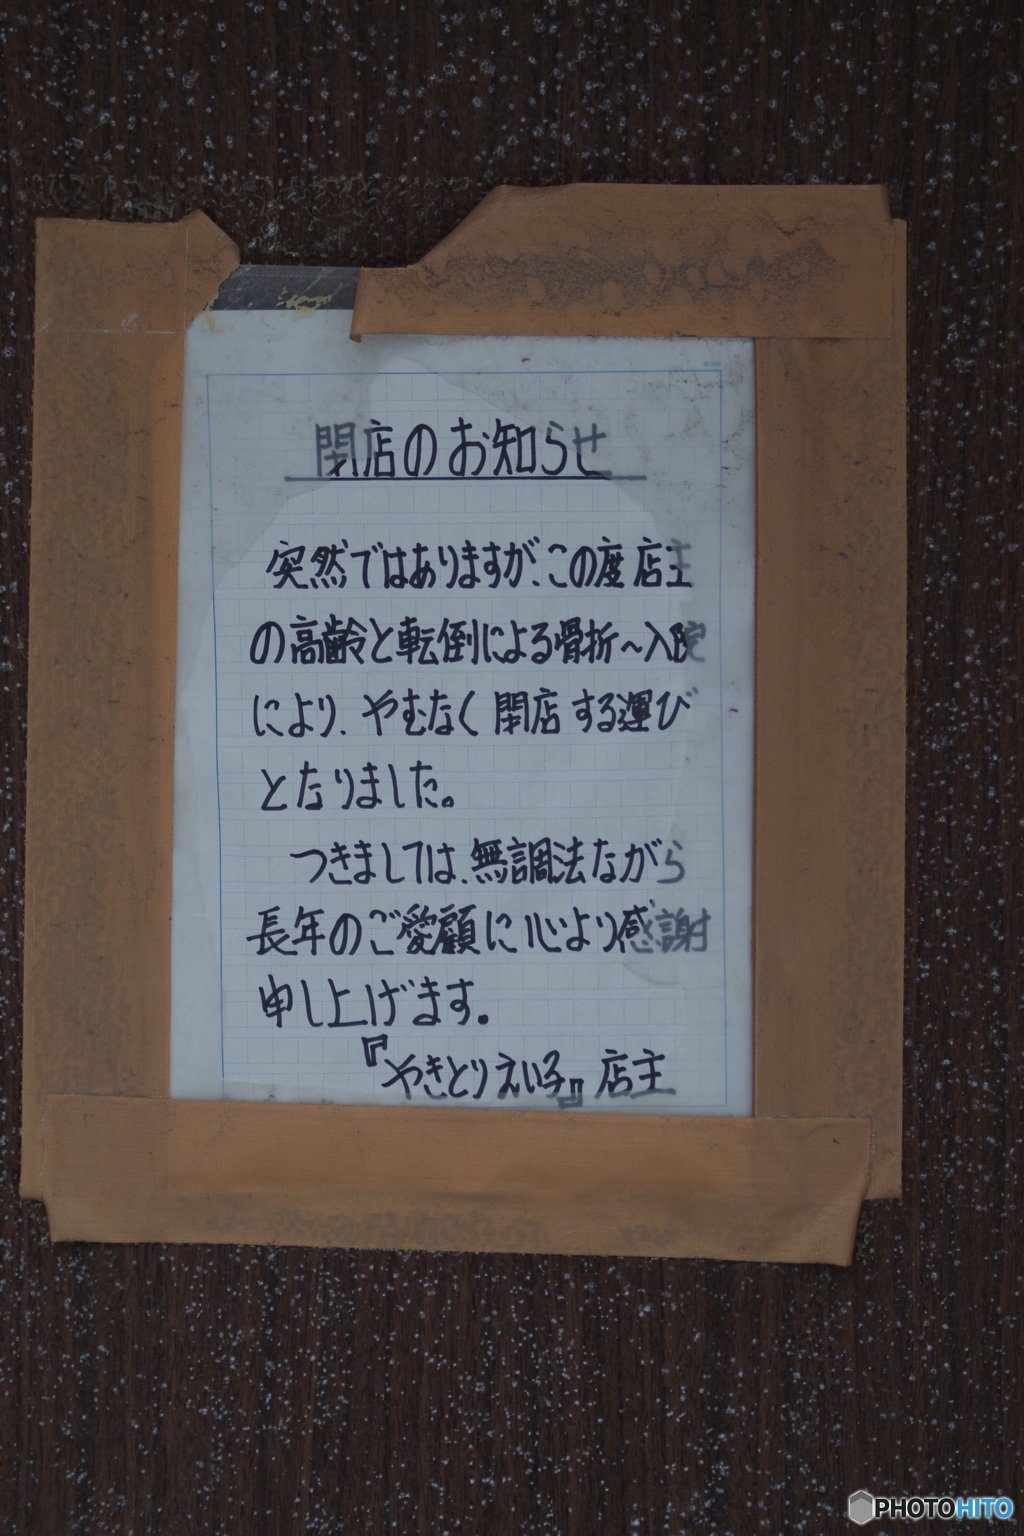 閉店のお知らせ
突然ではありますが、この度店主
の高齢と転倒による骨折～入院
により、やむなく閉店する運び
となりました。
つきましては、無調法ながら
長年のご愛顧に心より感謝
申し上げます。
『やきとりえい子』店主
PHOTOHITO